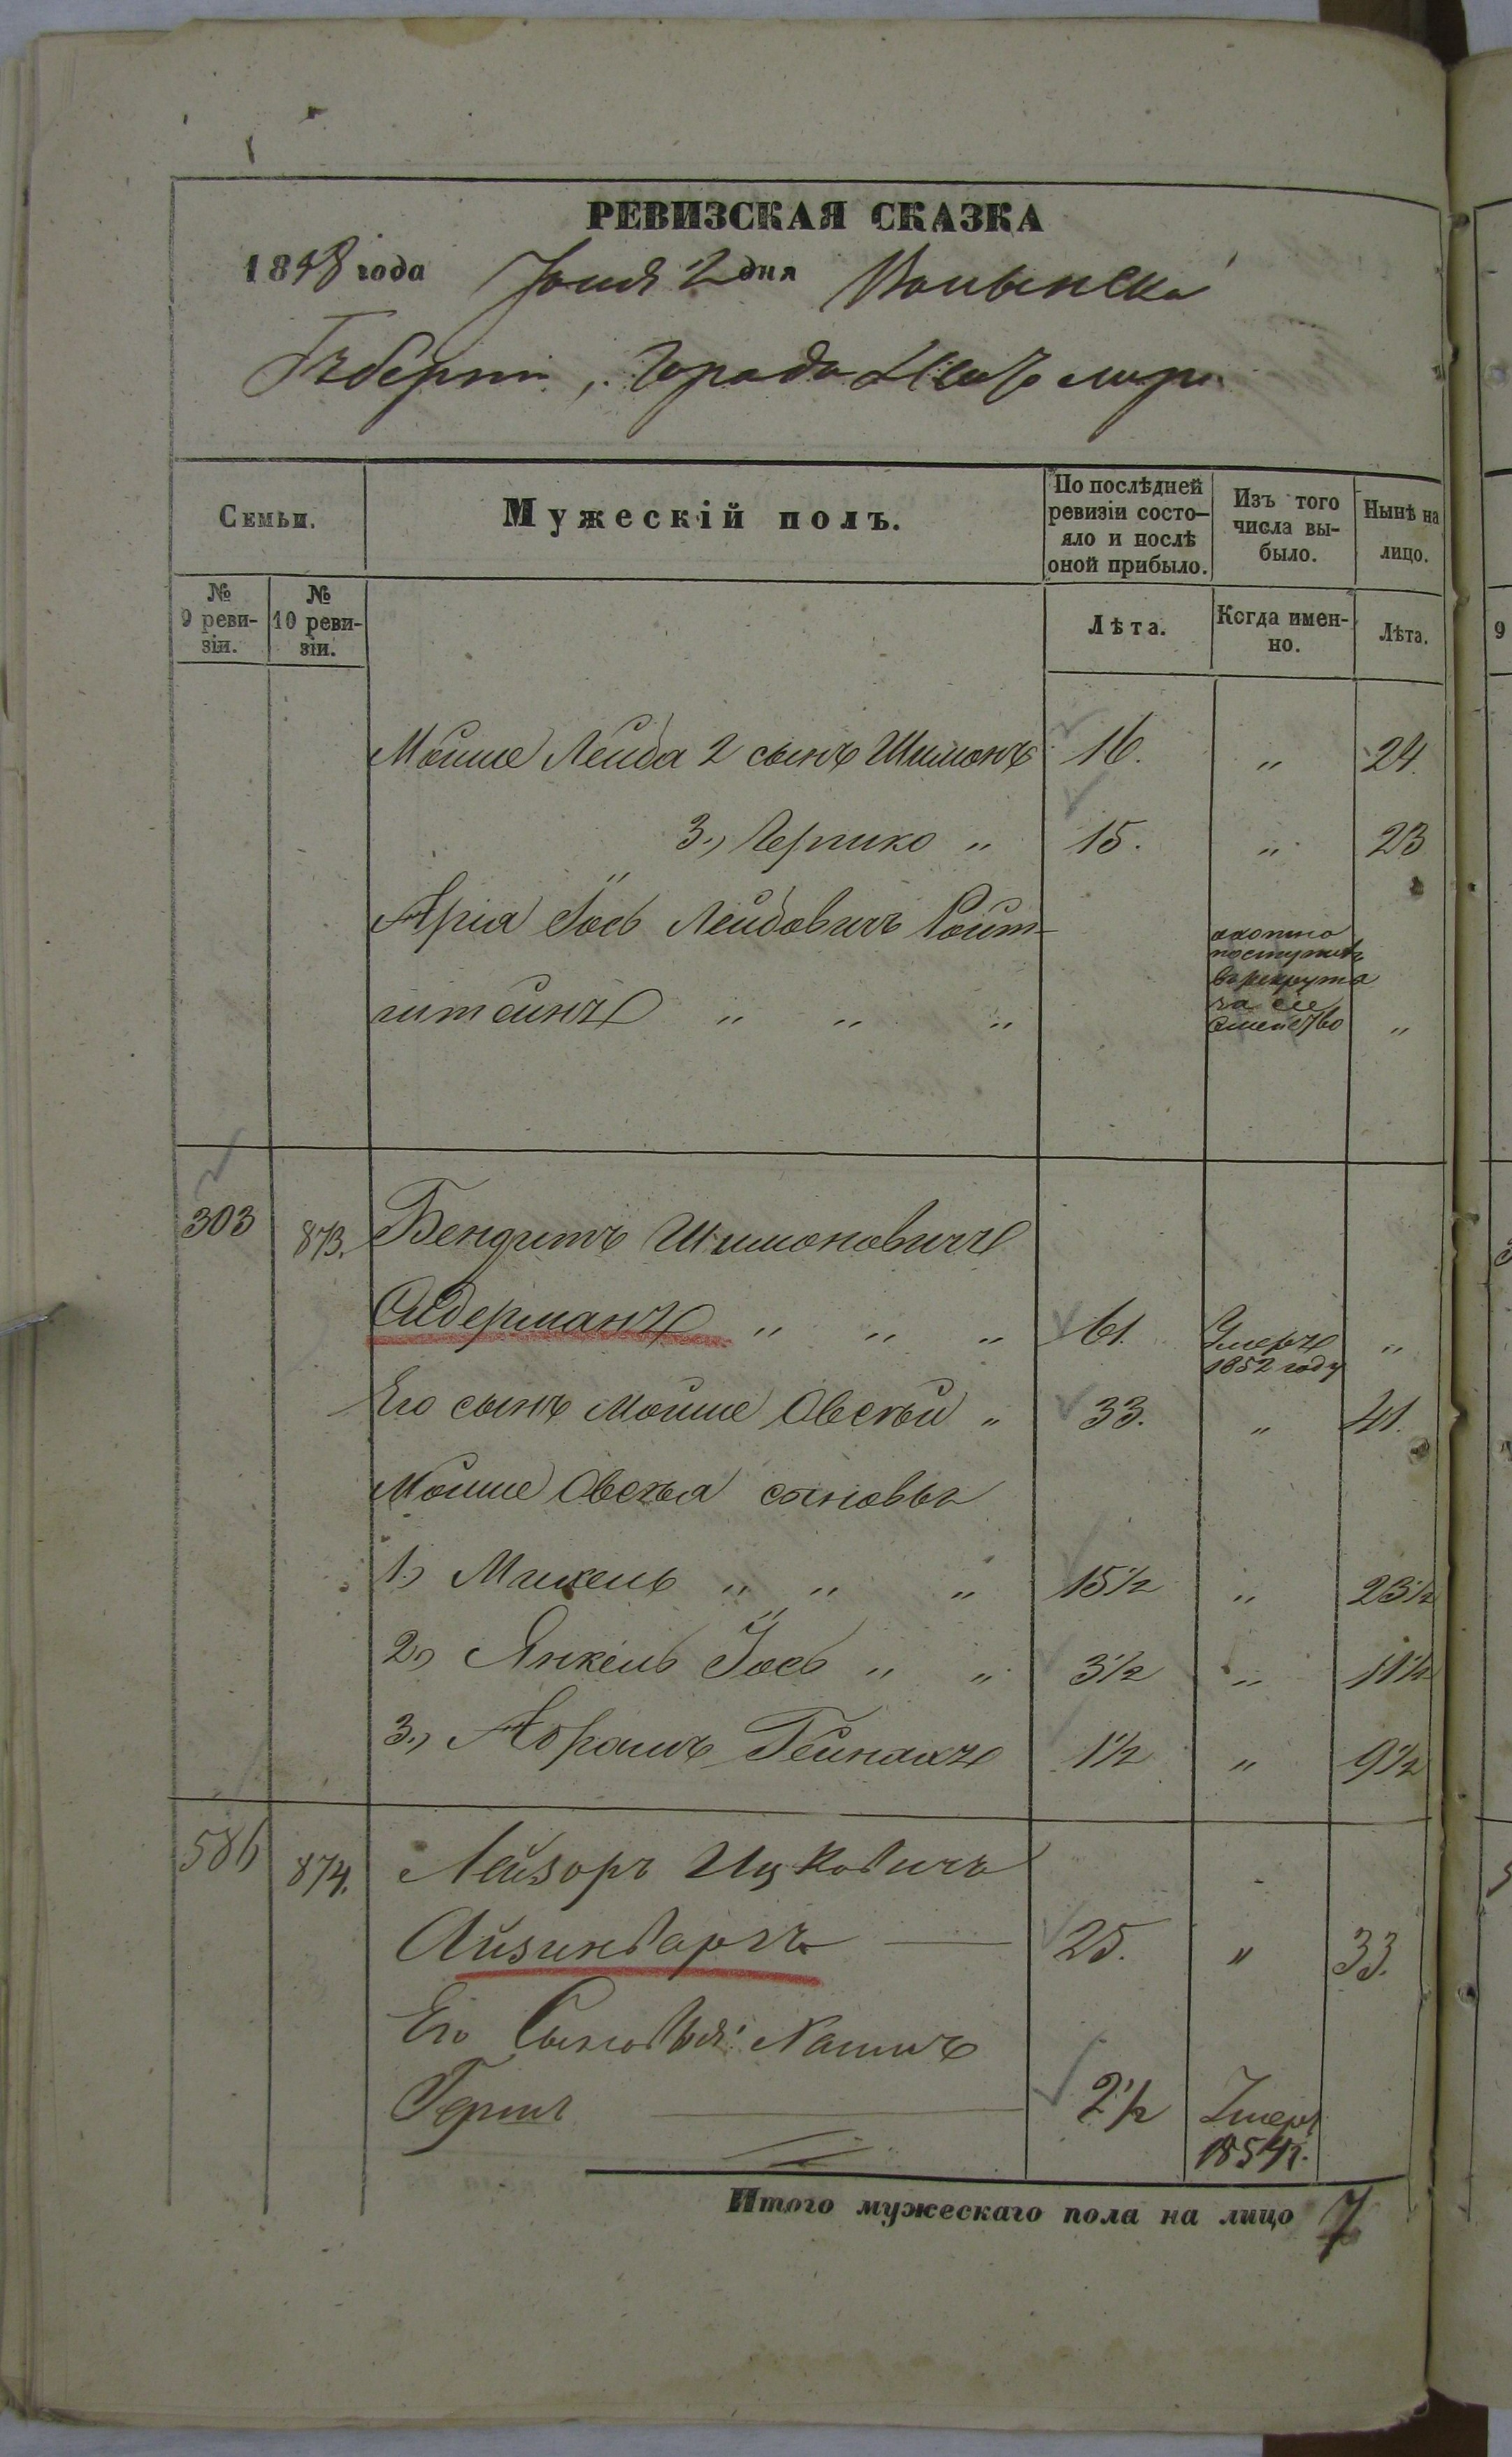 РЕВИЗСКАЯ СКАЗКА
1858 года Юня 2 дня Волынской
Губерніи, Города Житомира
Семьи.
Мужескій полъ.
По послѣдней ревизіи состо-яло и послѣ оной прибыло.
Изъ того числа вы-было.
Нынѣ на лицо.
№ 9 реви-зіи.
№ 10 реви-зіи.
Лѣта.
Когда имен-но.
Лѣта.
Мойше Лейба 2 сынъ Шимонъ 16. " 24.
3., Гершко " 15. " 23
Аріа Іось Лейбовичъ Ройт-
штейнъ " " " охотно поступилъ въ рекрута за сіе семейство "
303 873. Бендитъ Шимоновичъ
Сидерманъ " " " 61. Умеръ 1852 году "
Его сынъ Мойше Овсѣй " 33. " 41.
Мойше Овсѣя сыновья
1., Михель " " " 15½ " 23½
2., Янкель Іось " " 3½ " 11½
3., Абрамъ Гейнахъ 1½ " 9½
586 874. Лейзоръ Ицковичъ
Айзинбаргъ 25. " 33.
Его Сыновья: Нахимъ
Герш 2½ Умеръ 1854 г.
Итого мужескаго пола на лицо 7
9